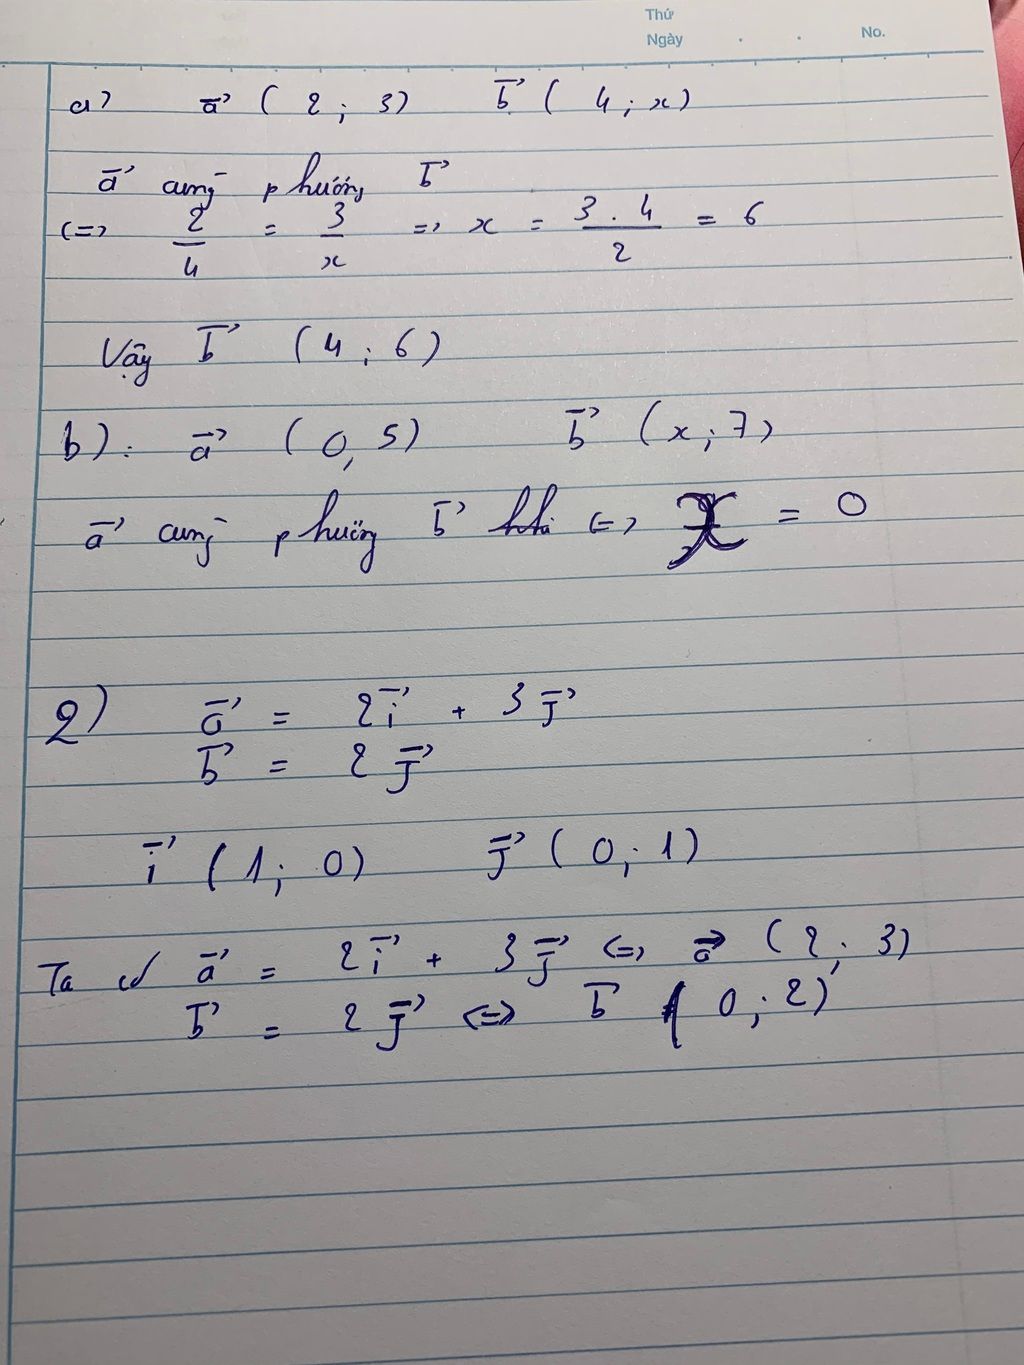 Thứ
Ngày . . No.
a) a⃗ ( 2 ; 3) b⃗ ( 4 ; x)
a⃗ cùng phương b⃗
<=> 2/4 = 3/x => x = 3 . 4/2 = 6
Vậy b⃗ (4 ; 6)
b) : a⃗ ( 0, 5) b⃗ (x ; 7)
a⃗ cùng phương b⃗ khi <=> x = 0
2) a⃗ = 2i⃗ + 3j⃗
b⃗ = 2j⃗
i⃗ (1 ; 0) j⃗ (0 ; 1)
Ta có a⃗ = 2i⃗ + 3j⃗ <=> a⃗ (2 ; 3)
b⃗ = 2j⃗ <=> b⃗ ( 0 ; 2)